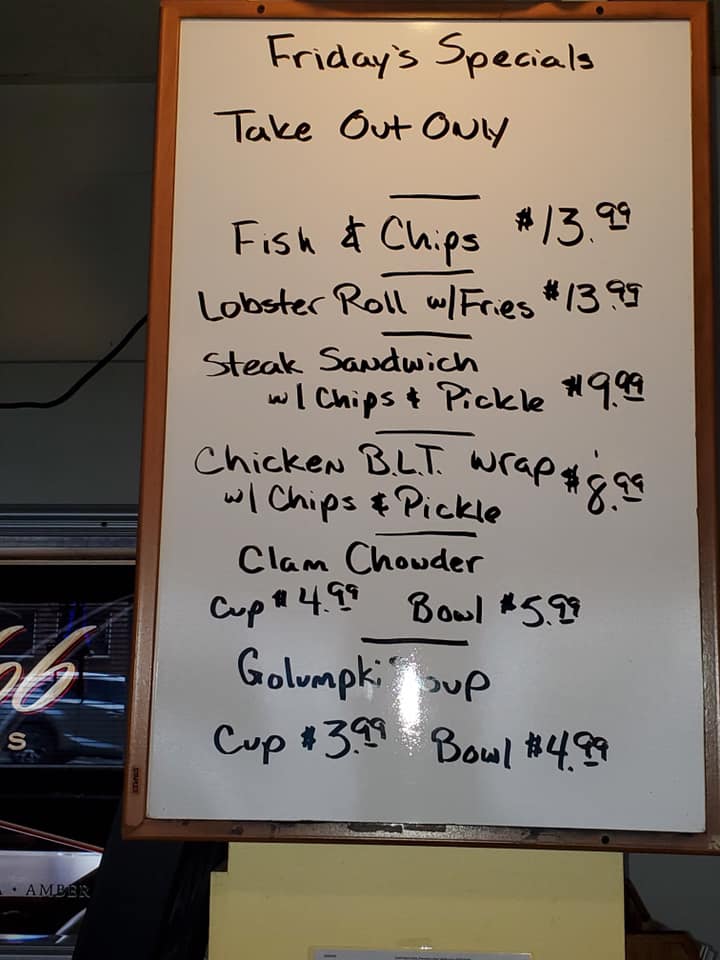 Friday's Specials
Take Out Only
Fish & Chips $13.99
Lobster Roll w/Fries $13.99
Steak Sandwich
w/ Chips & Pickle $9.99
Chicken B.L.T. Wrap $8.99
w/ Chips & Pickle
Clam Chowder
Cup $4.99 Bowl $5.99
Golumpki Soup
Cup $3.99 Bowl $4.99
S
AMBER